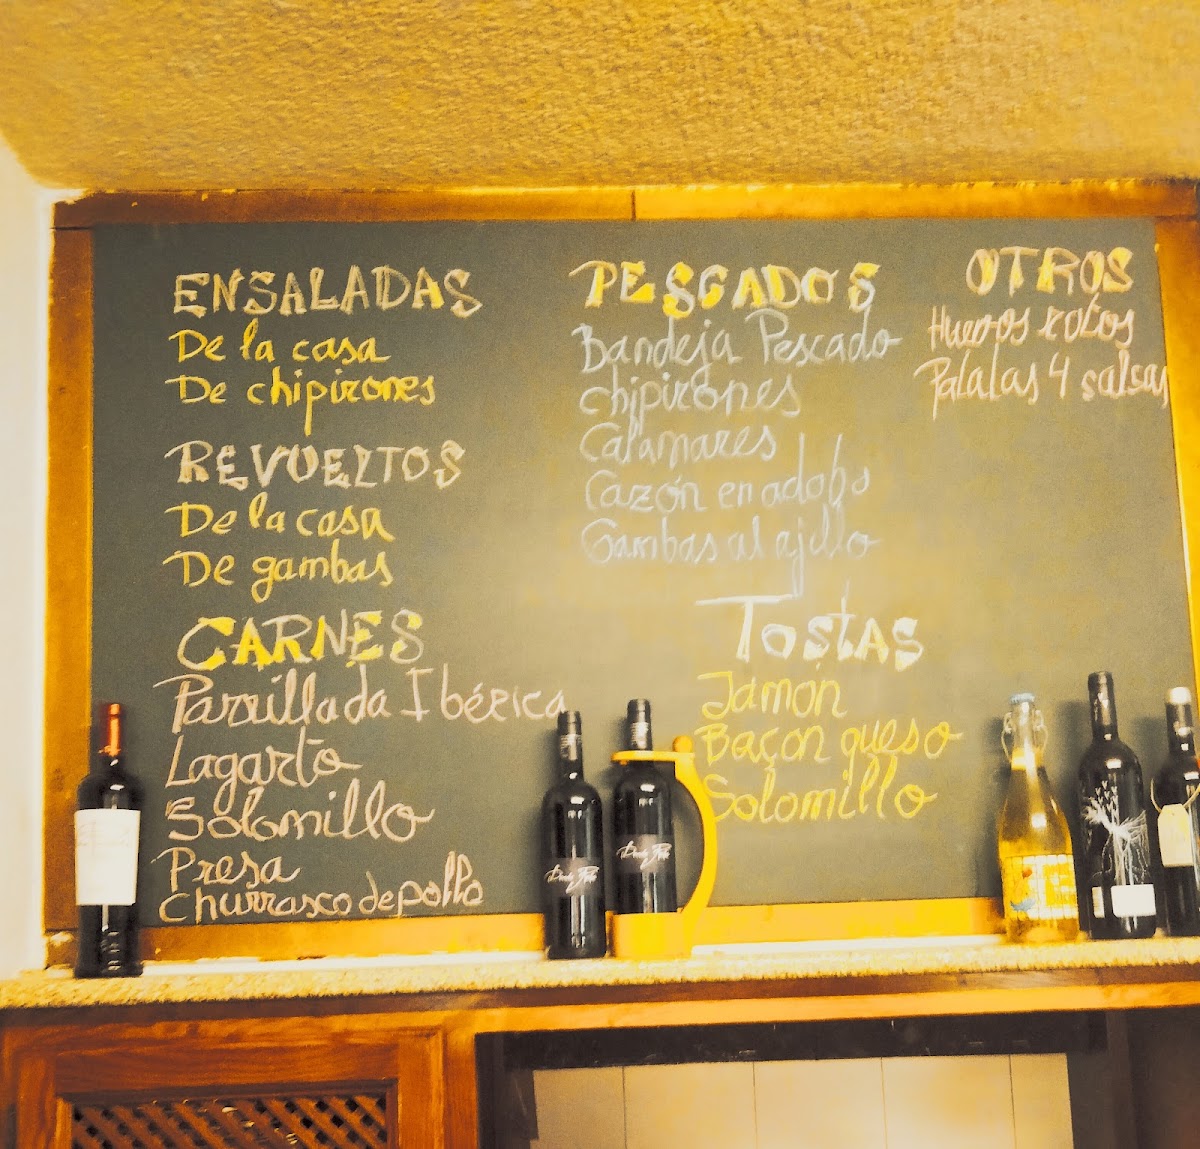 ENSALADAS
De la casa
De chipirones
REVUELTOS
De la casa
De gambas
CARNES
Parrillada Ibérica
Lagarto
Solomillo
Presa
Churrasco de pollo
PESCADOS
Bandeja Pescado
Chipirones
Calamares
Cazón en adobo
Gambas al ajillo
TOSTAS
Jamón
Baçon queso
Solomillo
OTROS
Huevos rotos
Patatas 4 salsas